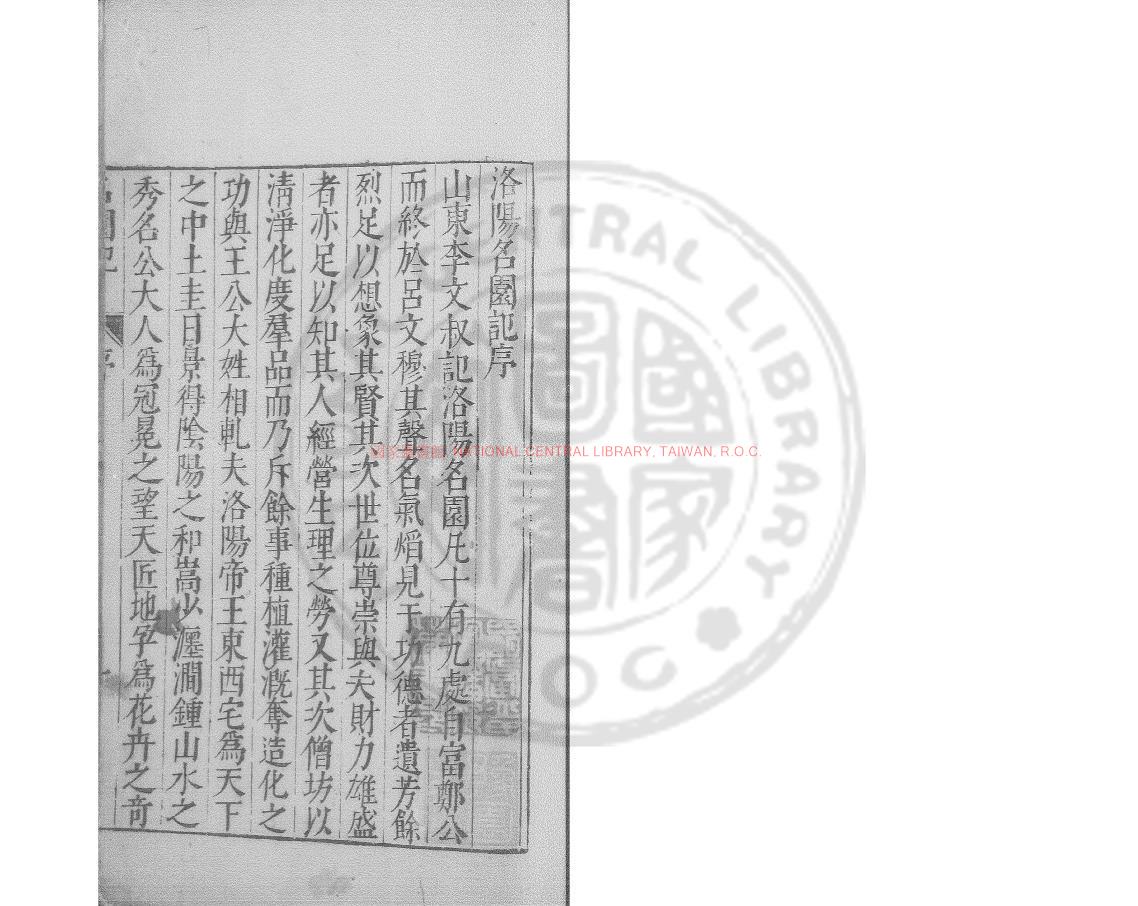 洛陽名園記序
山東李文叔記洛陽名園凡十有九處自富鄭公
而終於呂文穆其聲名氣焰見于功德者遺芳餘
烈足以想象其賢其次世位尊崇與夫財力雄盛
者亦足以知其人經營生理之勞又其次僧坊以
清淨化度羣品而乃斥餘事種植灌漑奪造化之
功與王公大姓相軋夫洛陽帝王東西宅為天下
之中土圭日景得陰陽之和嵩少瀍澗鍾山水之
秀名公大人為冠冕之望天匠地孕為花卉之奇
名園記
序
一
NATIONAL CENTRAL LIBRARY, TAIWAN, R.O.C.
CENTRAL LIBRARY
國家圖書館